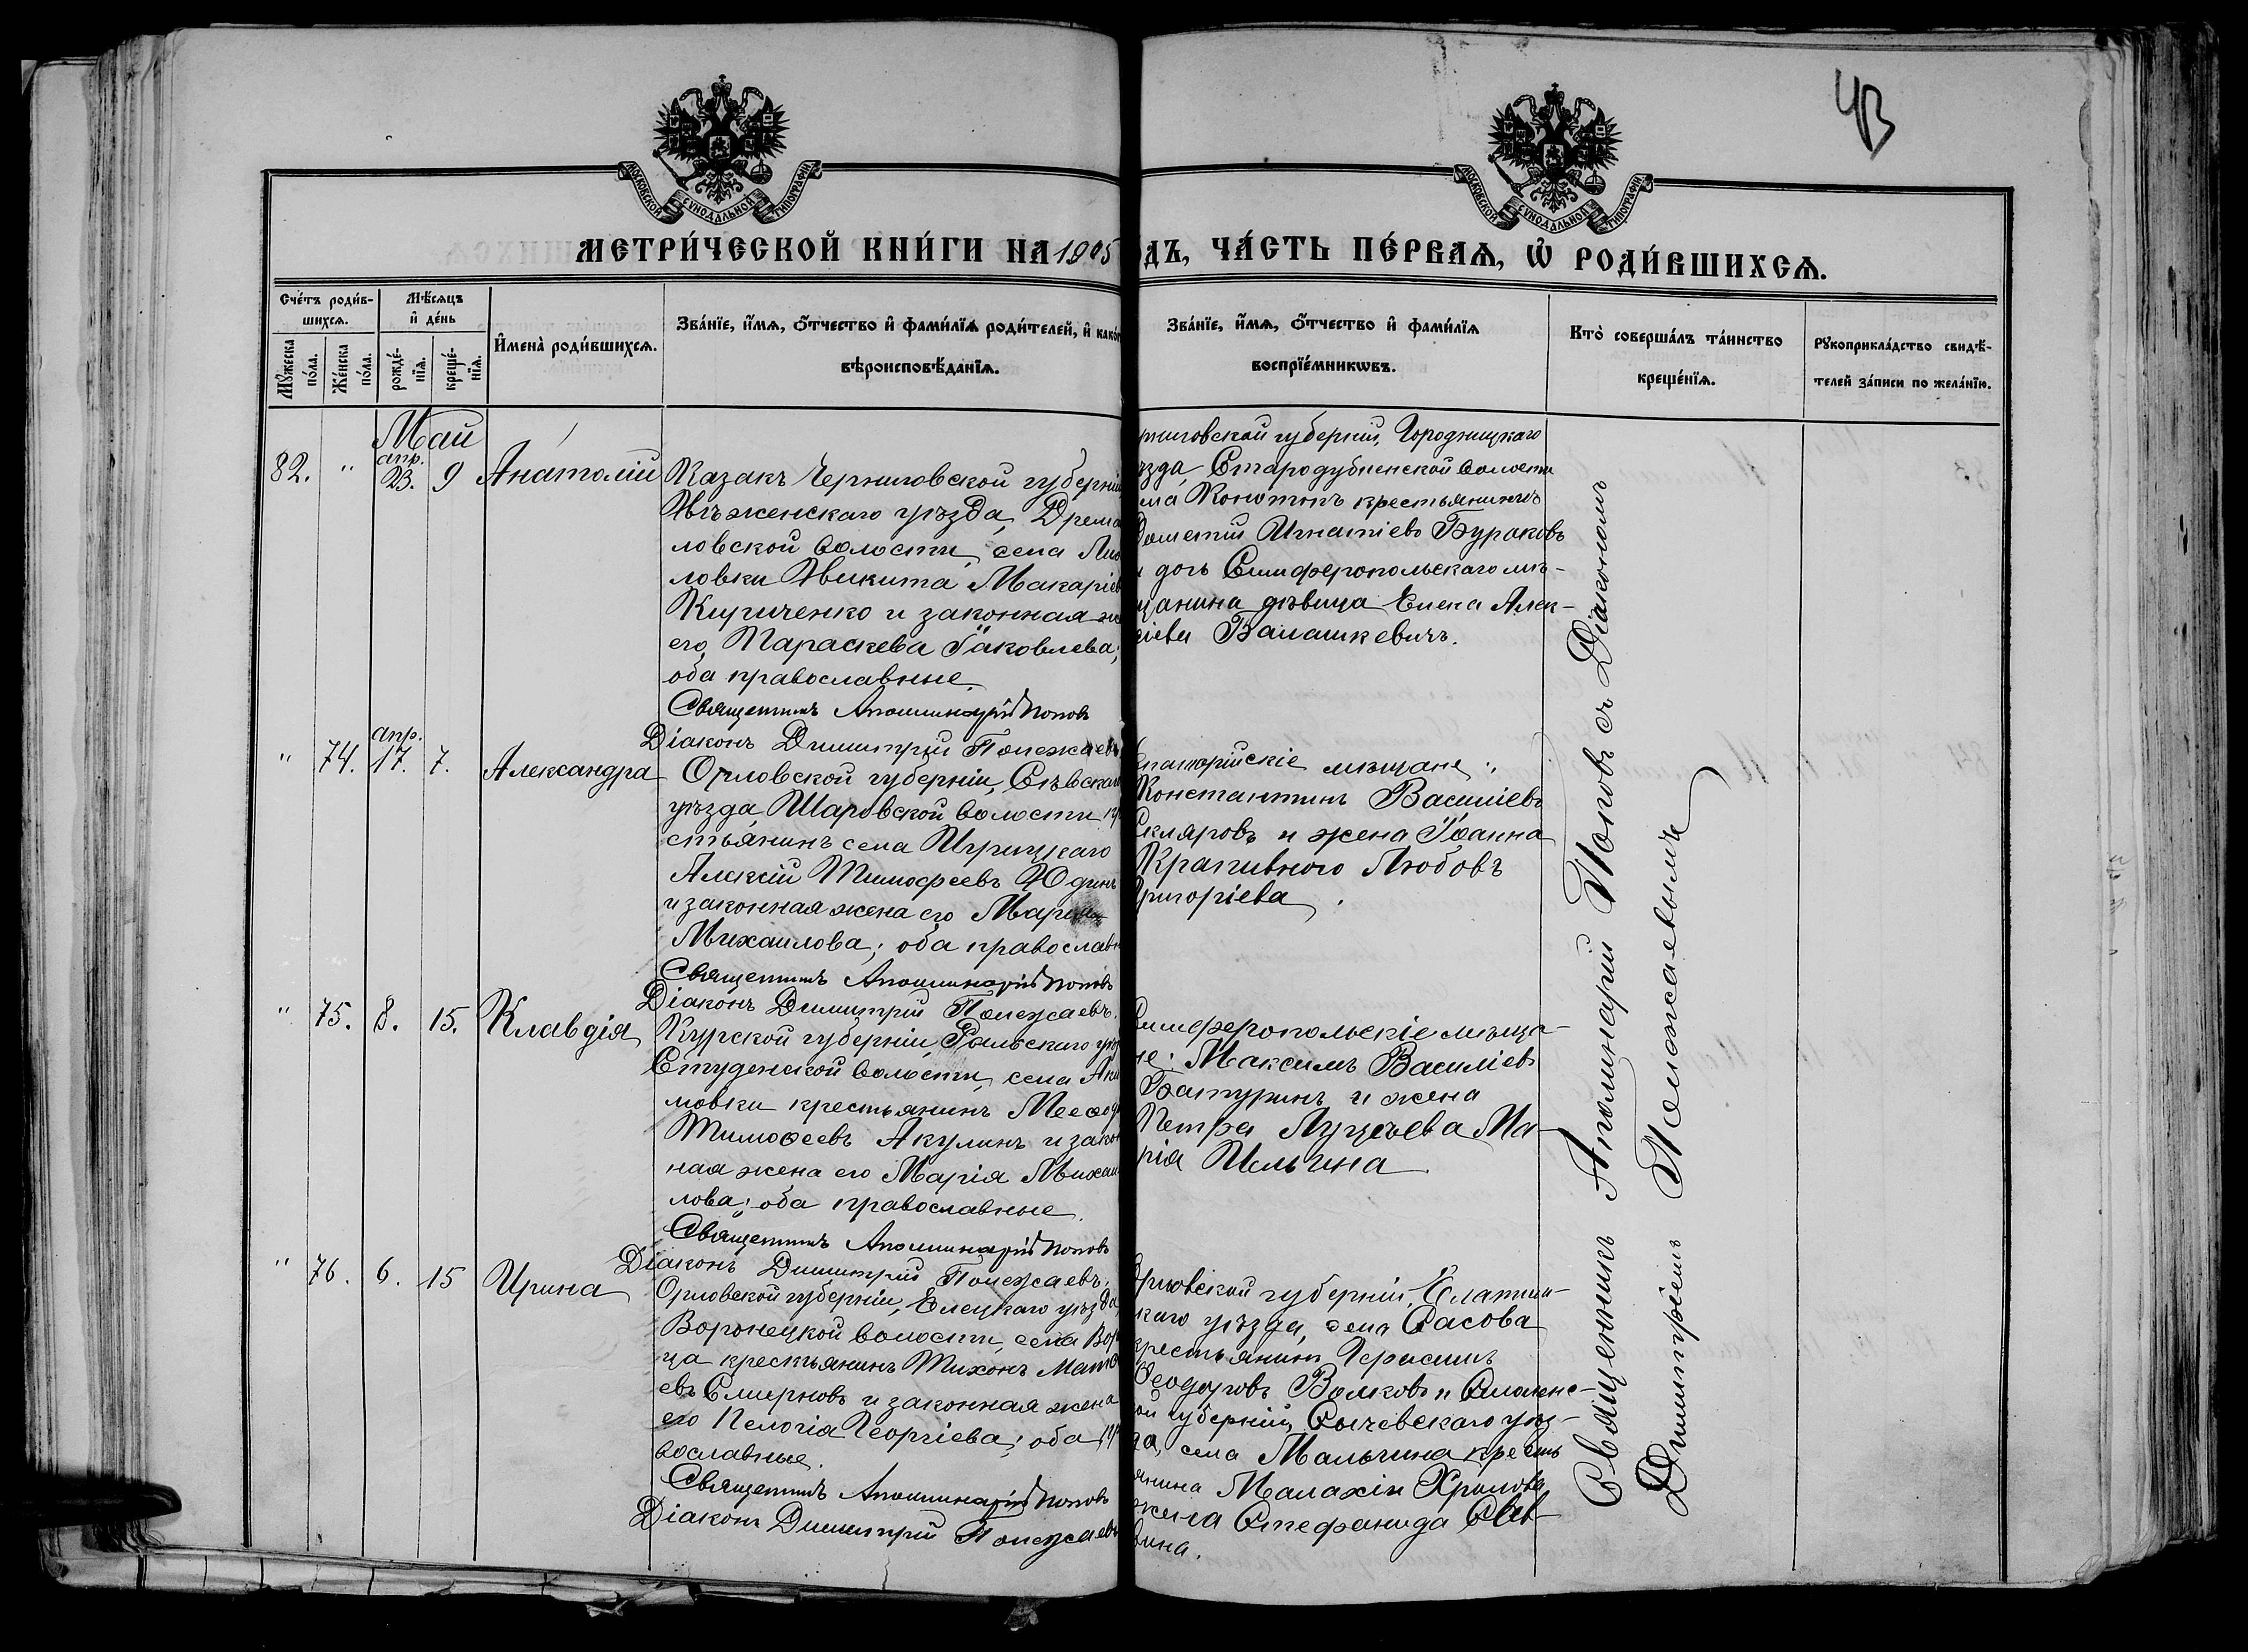 43
МОСКОВСКОЙ СУНОДАЛЬНОЙ ТИПОГРАФІИ
МОСКОВСКОЙ СУНОДАЛЬНОЙ ТИПОГРАФІИ
МЕТРИ́ЧЕСКОЙ КНИ́ГИ НА 1905
ДЪ, ЧА́СТЬ ПЕ́РВАѦ, Ѡ РОДИ́ВШИХСѦ.
Сче́тъ роди́в-
шихсѧ.
Мꙋжеска по́ла.
Же́нска по́ла.
Мѣ́сѧцъ
и҆ де́нь
рожде́-
нїѧ.
креще́-
нїѧ.
И҆мена̀ роди́вшихсѧ.
Зва́нїе, и҆́мѧ, ѻ҆́тчество и҆ фами́лїѧ роди́телей, и҆ како́
вѣроисповѣ́данїѧ.
Зва́нїе, и҆́мѧ, ѻ҆́тчество и҆ фами́лїѧ
воспрїе́мникѡвъ.
Кто̀ соверша́лъ та́инство
креще́нїѧ.
Рꙋкоприкла́дство свидѣ́-
телей за́писи по жела́нїю.
Май
82. " апр. 23. 9 Анатолій
Казакъ Черниговской губерніи
Нѣженскаго уѣзда, Дрема
ловской волости, села
ловки Никита Макаріев
Кириченко и законная же
его Параскева Іаковлева;
оба православные.
Священникъ Аполлинарій Поповъ
Діаконъ Димитрій Полежаевъ
рниговской губерніи, Городницкаго
ѣзда, Стародубненской волости
ла Конотопъ крестьянинъ
Дометій Игнатіевъ Бураковъ
и дочь Симферопольскаго мѣ-
щанина дѣвица Елена Алек-
сіева Балашкевичъ.
" 74. апр. 17. 7. Александра
Орловской губерніи, Сѣвскаго
уѣзда, Шаровской волости кр
стьянинъ села Игрицкаго
Алексій Тимофеевъ Юдинъ
и законная жена его Марія
Михаилова; оба православн
Священникъ Аполлинарій Поповъ
Діаконъ Димитрій Полежаевъ.
впаторійскіе мѣщане:
Константинъ Василіевъ
Скляровъ и жена Іоанна
Крапивного Любовь
Григоріева.
" 75. 8. 15. Клавдія
Курской губерніи, Рыльскаго уѣз
Студенской волости, села Аки
мовки крестьянинъ Меѳод
Тимоѳеевъ Акулинъ и закон
ная жена его Марія Михаи
лова; оба православные.
Священникъ Аполлинарій Поповъ
Діаконъ Димитрій Полежаевъ.
Симферопольскіе мѣща-
не: Максимъ Василіевъ
Батуринъ и жена
Петра Ма-
рія Ильина.
" 76. 6. 15 Ирина
Орловской губерніи, Елецкаго уѣзда,
Воронецкой волости, села Вор
ца крестьянинъ Тихонъ Матѳ
евъ Смирновъ и законная жена
его Пелагія Георгіева; оба пр
вославные.
Священникъ Аполлинарій Поповъ
Діаконъ Димитрій Полежаевъ
губерніи, Елатом-
скаго уѣзда, села Сасова
крестьянинъ Герасимъ
Ѳеодоровъ Волковъ и Смоленс-
ой губерніи, Сычевскаго уѣз-
да, села Мальчина кресть
янина Малахіи Хролова
жена Стефанида Сав-
вина.
Священникъ Аполинарій Поповъ съ Діакономъ
Димитріемъ Полежаевымъ